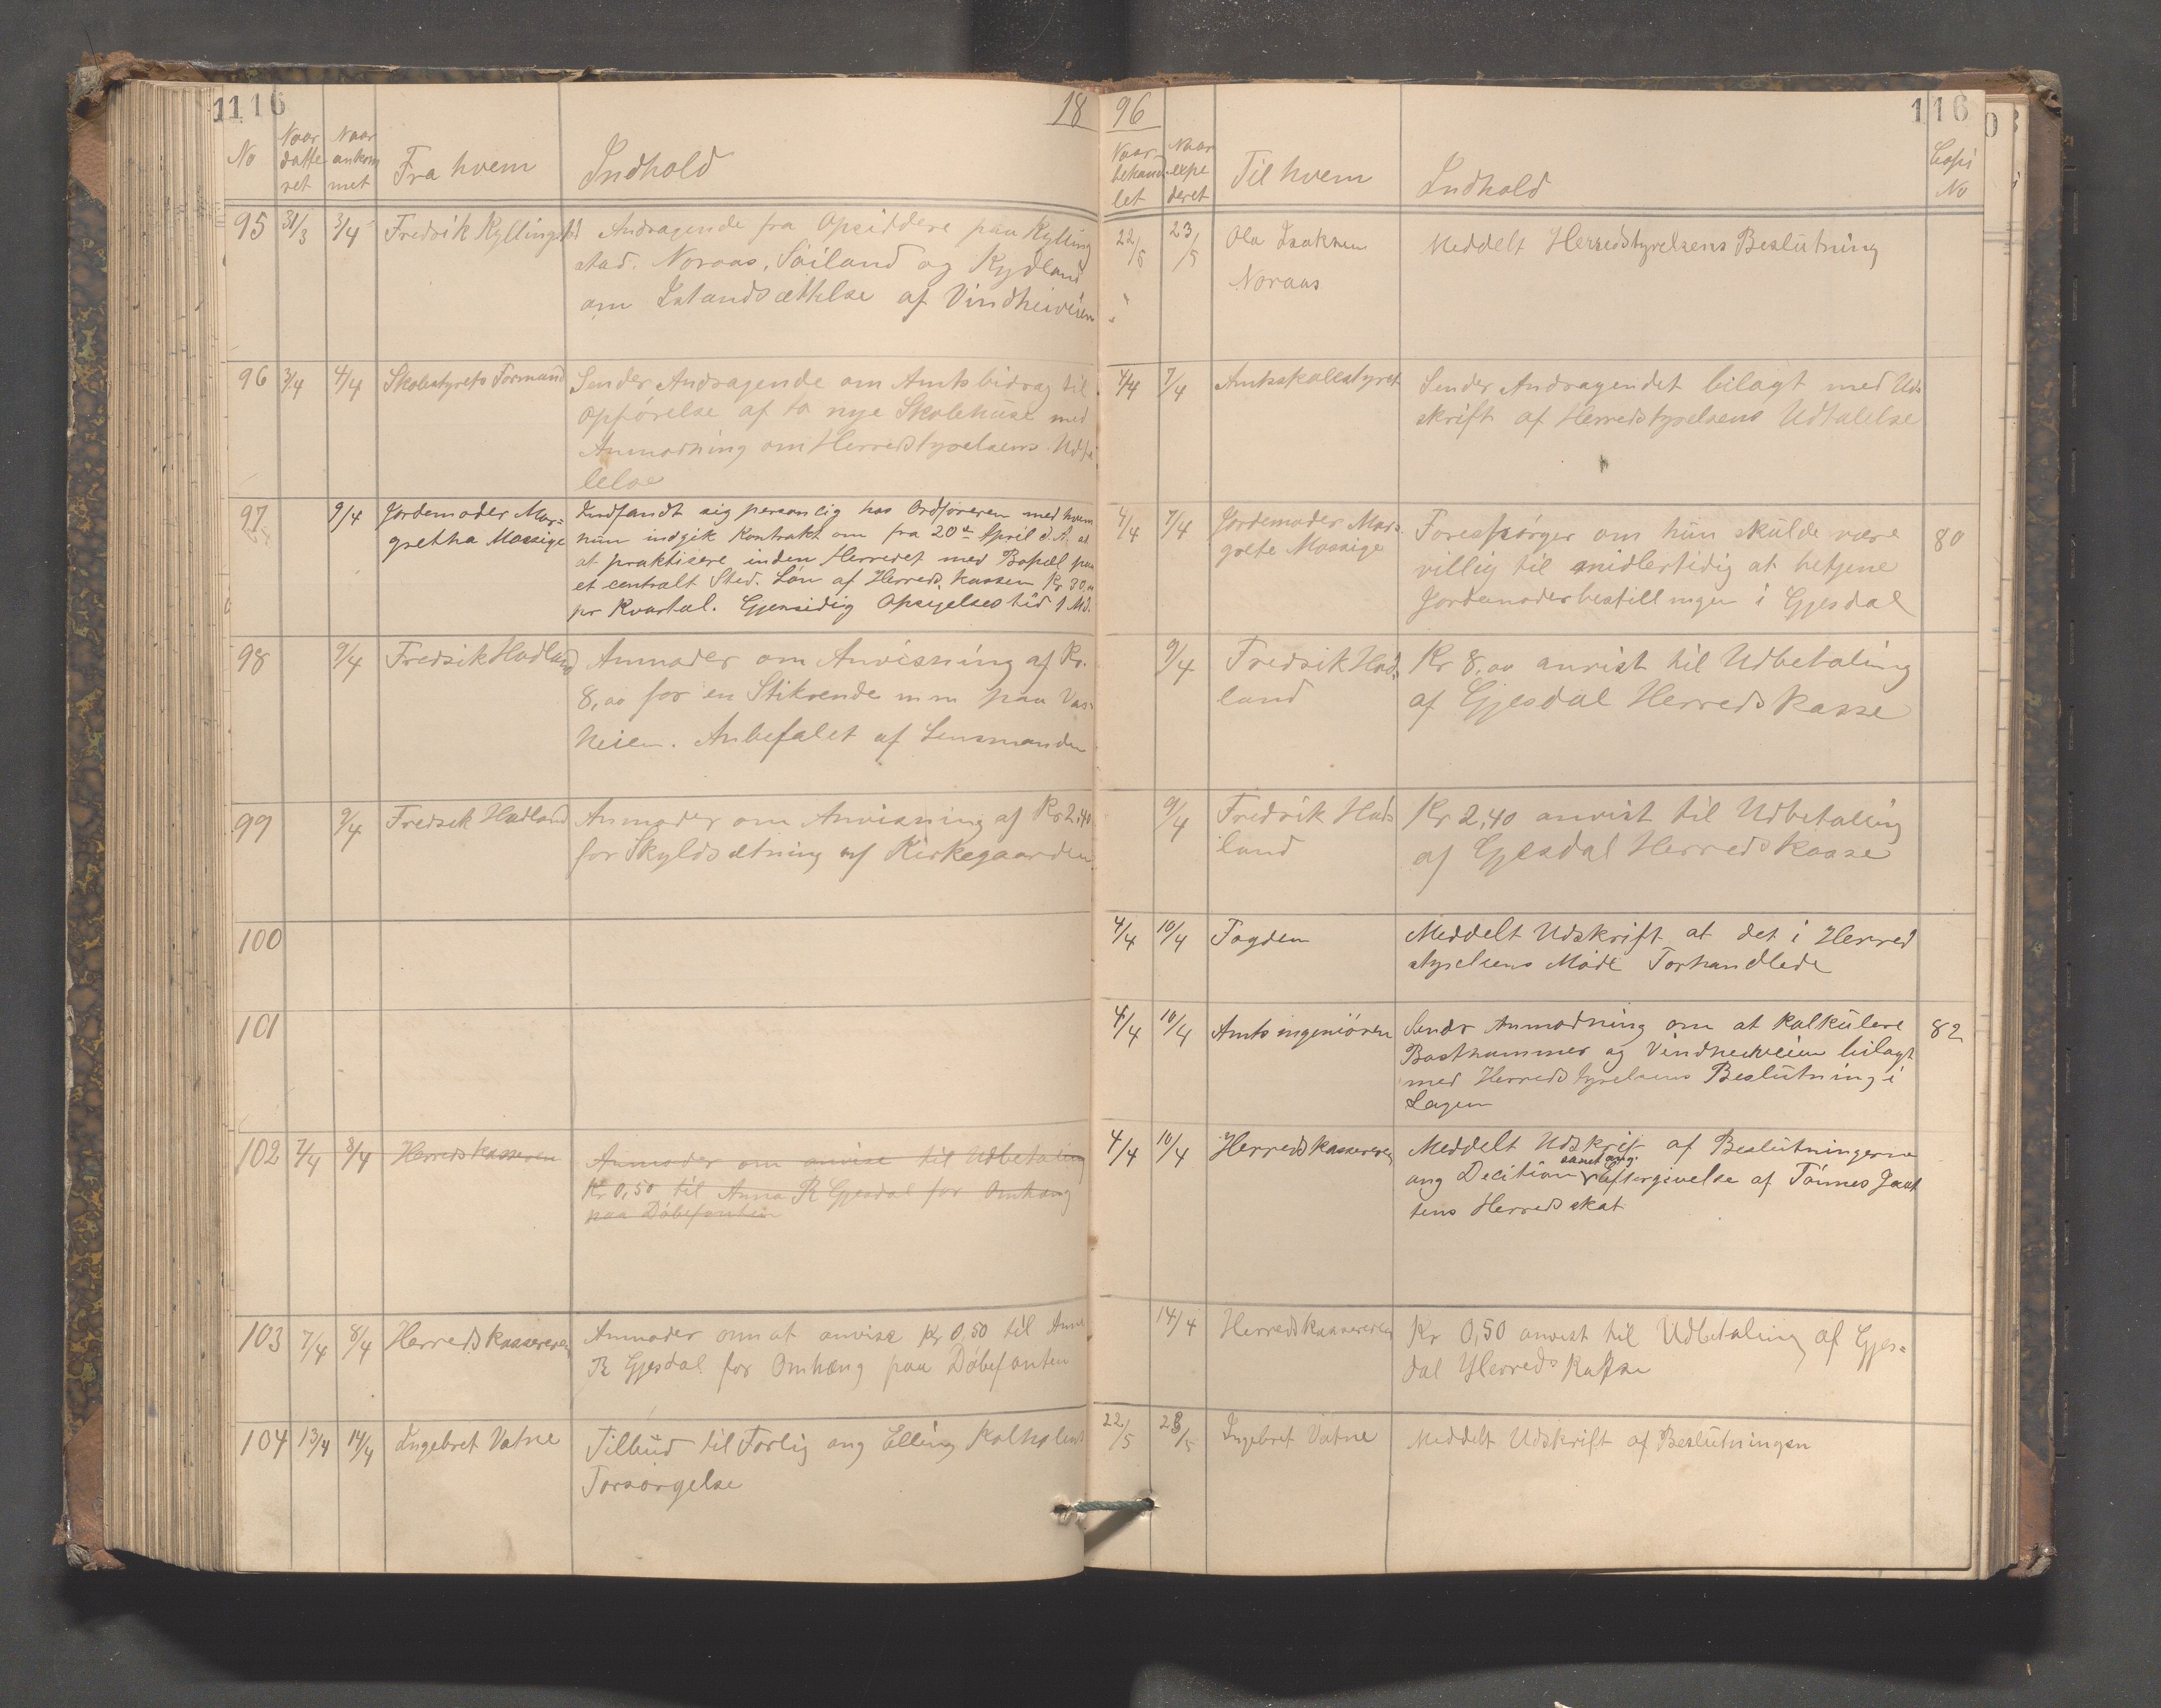 1116
18
No
Naar datte ret
Naar ankom met
Fra hvem
Indhold
95 31/3 3/4 Fredrik Kyllingstd
Andragende fra Opsiddere paa Kylling
stad. Noraas, Søiland og Kydland
om Istandsættelse af Vindheiveien
96 3/4 4/4 Skolestyrets Formand
Sender Andragende om Amtsbidrag til
Opførelse af to nye Skolehuse med
Anmodning om Herredstyrelsens Udta
lelse
97 9/4 Jordemoder Mar=
gretha Mossige
Indfandt sig personlig hos Ordføreren med hvem
hun indgik Kontrakt om fra 20de April d. A. at
at praktisere inden Herredet med Bopæl paa
et centralt Sted. Løn af Herredskassen Kr 30,00
pr Kvartal. Gjensidig Opsigelses tid 1 Md.
98 9/4 Fredrik Hadland
Anmoder om Anvisning af Kr.
8,00 for en Stikrende m m paa Vas-
heien. Anbefalet af Lensmanden
99 9/4 Fredrik Hadland
Anmoder om Anvisning af Kr 2,40
for Skyldsætning af Kirkegaarden
100
101
102 7/4 8/4 Herredskasseren
Anmoder om anvise til Udbetaling
Kr 0,50 til Anna R Gjesdal for Omhæng
paa Døbefonten
103 7/4 8/4 Herredskassereren
Anmoder om at anvise Kr 0,50 til Anna
R Gjesdal for Omhæng paa Døbefonten
104 13/4 14/4 Ingebret Vatne
Tilbud til Forlig ang Elling
Forsørgelse
96
116
Naar behand let
Naar expe deret
Til hvem
Indhold
Copi No
22/5 23/5 Ola Isaksen
Noraas
Meddelt Herredstyrelsens Beslutning
4/4 7/4 Amtsskolestyret
Sender Andragendet bilagt med Ud
skrift af Herredstyrelsens Udtalelse
4/4 7/4 Jordemoder Mar=
grete Mossige
Forespørger om hun skulde være
villig til midlertidig at betjene
Jordemoderbestillingen i Gjesdal
80
9/4 Fredrik Had=
land
Kr 8,00 anvist til Udbetaling
af Gjesdal Herreds kasse
9/4 Fredrik Had
land
Kr 2,40 anvist til Udbetaling
af Gjesdal Herredskasse
4/4 10/4 Fogden
Meddelt Udskrift at det i Herred
styrelsens Møde Forhandlede
4/4 10/4 Amtsingeniøren
Sendr Anmodning om at kalkulere
Basthammer og Vindheiveien bilagt
med Herredstyrelsens Beslutning i
Sagen
82
4/4 10/4 Herredskassereren
Meddelt Udskrif af Beslutningerne
ang Decition samt ang. Eftergivelse af Tønnes Jaat
tens Herredsskat
14/4 Herredskassereren
Kr 0,50 anvist til Udbetaling af Gjes=
dal Herreds kasse
22/5 28/5 Ingebret Vatne
Meddelt Udskrift af Beslutningen